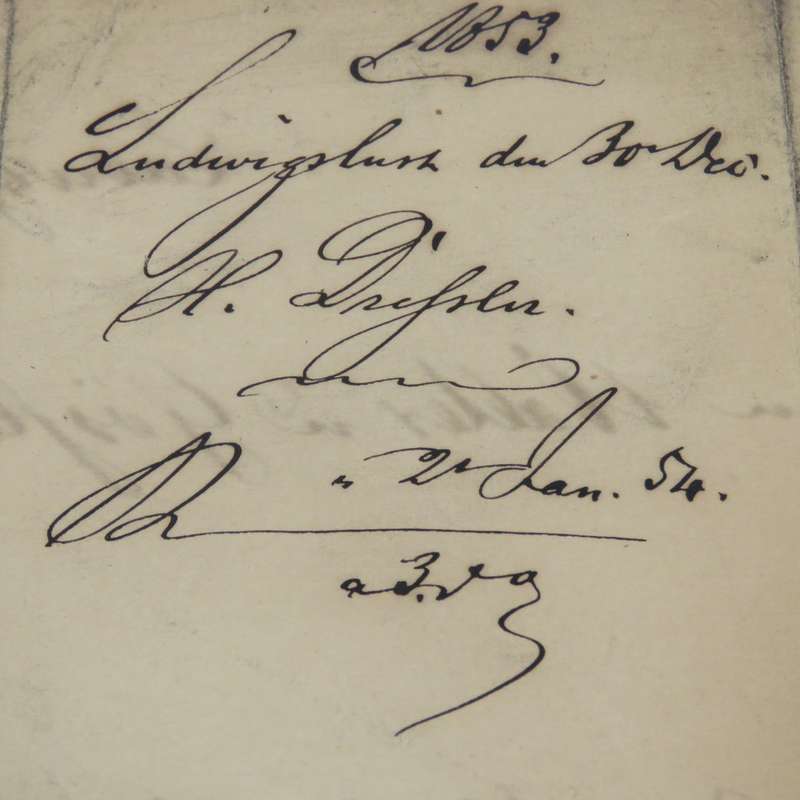 1853.
Ludwigslust den 30t Dec.
H. Dressler.
R " 2t Jan. 54.
a 3. d